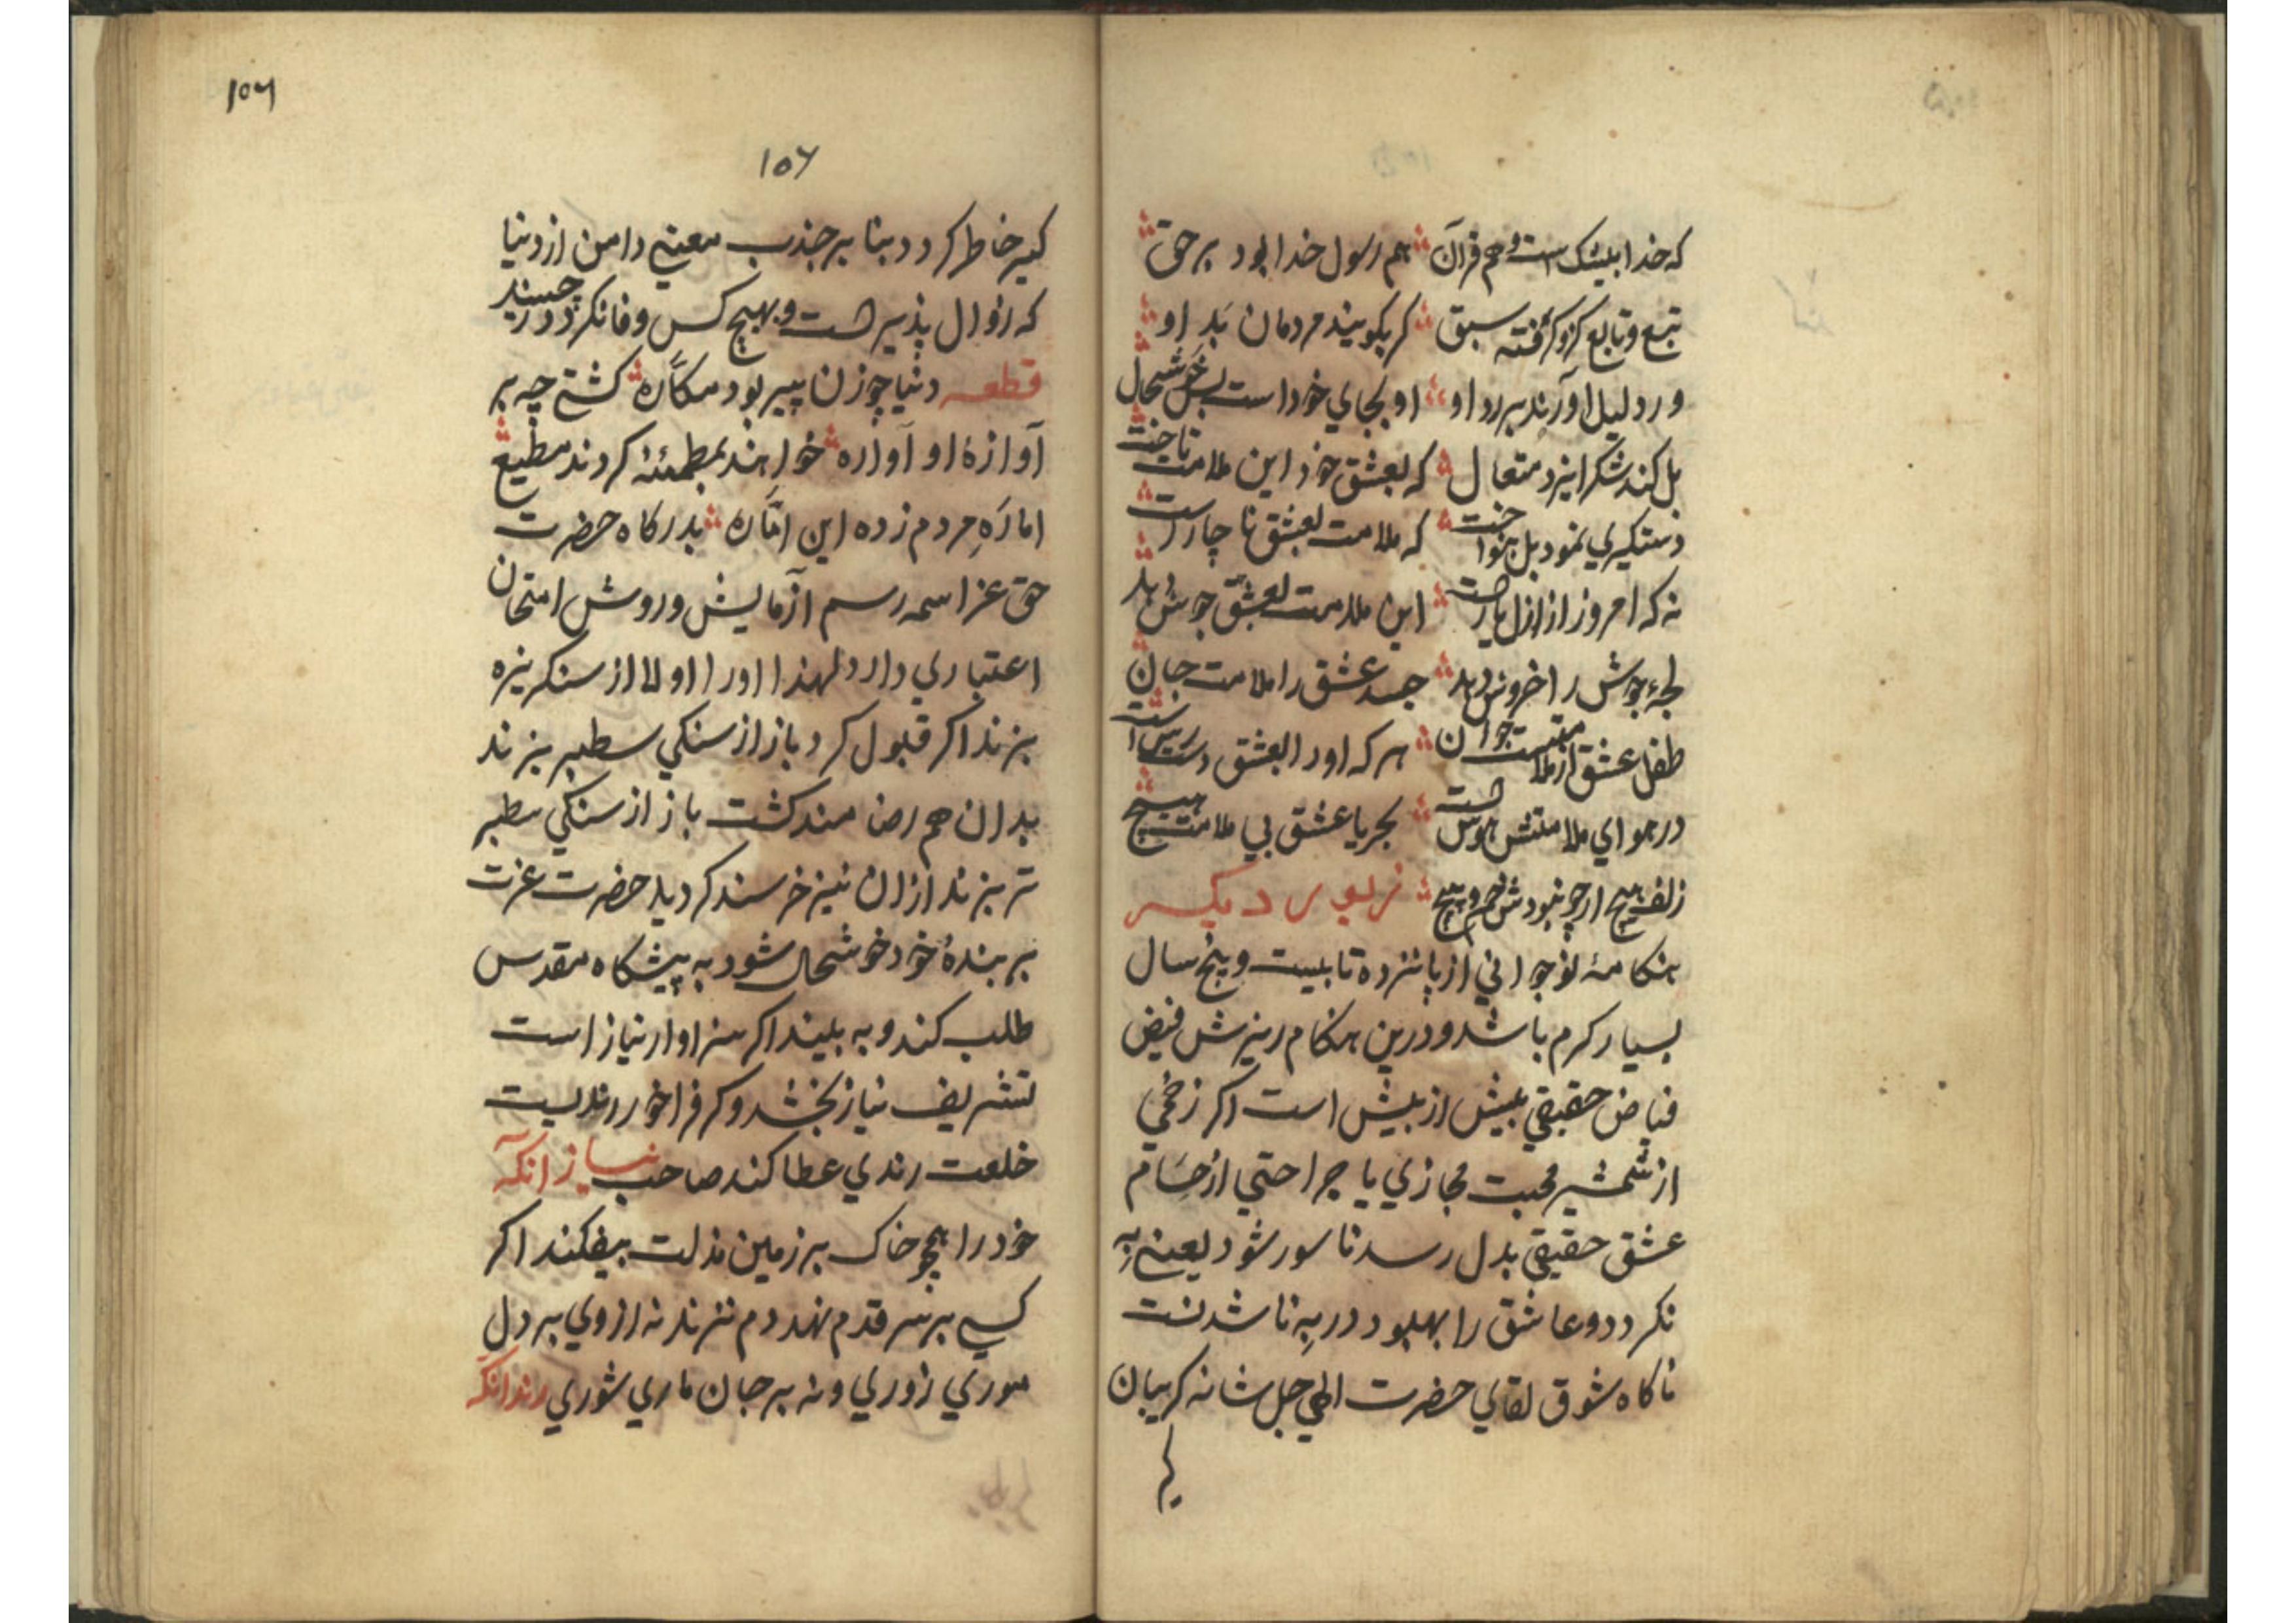 که خدا بیشک است و هم قرآن هم رسول خدا بود بر حق
تبع و تابع کزو گرفته سبق کر بکویند مردمان بَدِ او
ور دلیل آورند بر رد او او بجای خود است بس خوشحال
بل کند شکر ایزد متعال که بعشق خود این ملامت تاخت
دستکیری نمود بل بنواخت که ملامت بعشق ناچارست
نه که امروز از ازل یارست این ملامت بعشق جوش بد
لجهٔ جوش را خروش دهد جسد عشق را ملامت جان
طفل عشق از ملامتست جوان هر که اورا بعشق دسترس است
در هوای ملامتش هوس است بحر یا عشق بی ملامت هیچ
زلف هیچ ارچه نبودش خم و پیچ زیور دیکر
هنکامهٔ نوجوانی از پانزده تا بیست و پنج سال
بسیار کرم باشد و درین هنکام ریزش فیض
فیاض حقیقی بیش از بیش است اکر زخمی
از شمشیر محبت مجازی یا جراحتی از حسام
عشق حقیقی بدل رسد ناسور شود یعنی به
نکردد و عاشق را بهبود در به ناشدنست
ناکاه شوق لقای حضرت الهی جل شانه کریبان
۱۵۶
۱۵۶
کیر خاطر کردد بنا بر جذب معنی دامن از دنیا
که زوال پذیرست و بهیچ کس وفا نکرد در چسند
قطعه دنیا چو زن پیر بود مکاره کشتی چه بر
آوازهٔ او آواره خواهند بمطمئنه کردند مطیع
اماره مردم زده این امّاره بدرکاه حضرت
حق عز اسمه رسم آزمایش و روش امتحان
اعتباری دارد لهذا اورا اولا از سنکریزه
بزند اکر قبول کرد باز از سنکی سطبر بزند
بدان هم رضامند کشت باز از سنکی سطبر
تر بزند ازان نیز خرسند کردید حضرت عزت
بر بندهٔ خود خوشحال شود به پیشکاه مقدس
طلب کند و به بیند اکر سزاوار نیاز است
تشریف نیاز بخشد و کر فراخور رندیست
خلعت رندی عطا کند صاحب نیاز آنکه
خود را همچو خاک بر زمین مذلت بیفکند اکر
کسی بر سر قدم نهد دم نزند نه از وی بر دل
موری زوری و نه بر جان ماری شوری رند آنکه